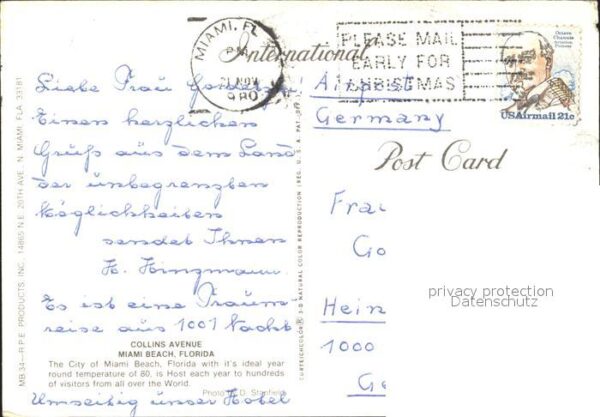 MIAMI, FL
PM
NOV
1980
PLEASE MAIL
EARLY FOR
CHRISTMAS
Octave
Chanute
Aviation
Pioneer
USAirmail 21c
International Airpost
Germany
Post Card
Liebe Frau
Einen herzlichen
Gruß aus dem Land
der unbegrenzten
Möglichkeiten
sendet Ihnen
H. Hingmann.
Es ist eine Traum
reise aus 1001 Nacht
COLLINS AVENUE
MIAMI BEACH, FLORIDA
The City of Miami Beach, Florida with it's ideal year
round temperature of 80, is Host each year to hundreds
of visitors from all over the World.
Photo D. Stanfield
Umseitig unser Hotel
Frau
Go
Hein
1000
Ge
privacy protection
Datenschutz
MB.34—R.P.E. PRODUCTS, INC., 14865 N.E. 20TH AVE., N. MIAMI, FLA. 33181
CURTEICHCOLOR® 3-D NATURAL COLOR REPRODUCTION (REG. U.S.A. PAT. OFF.)